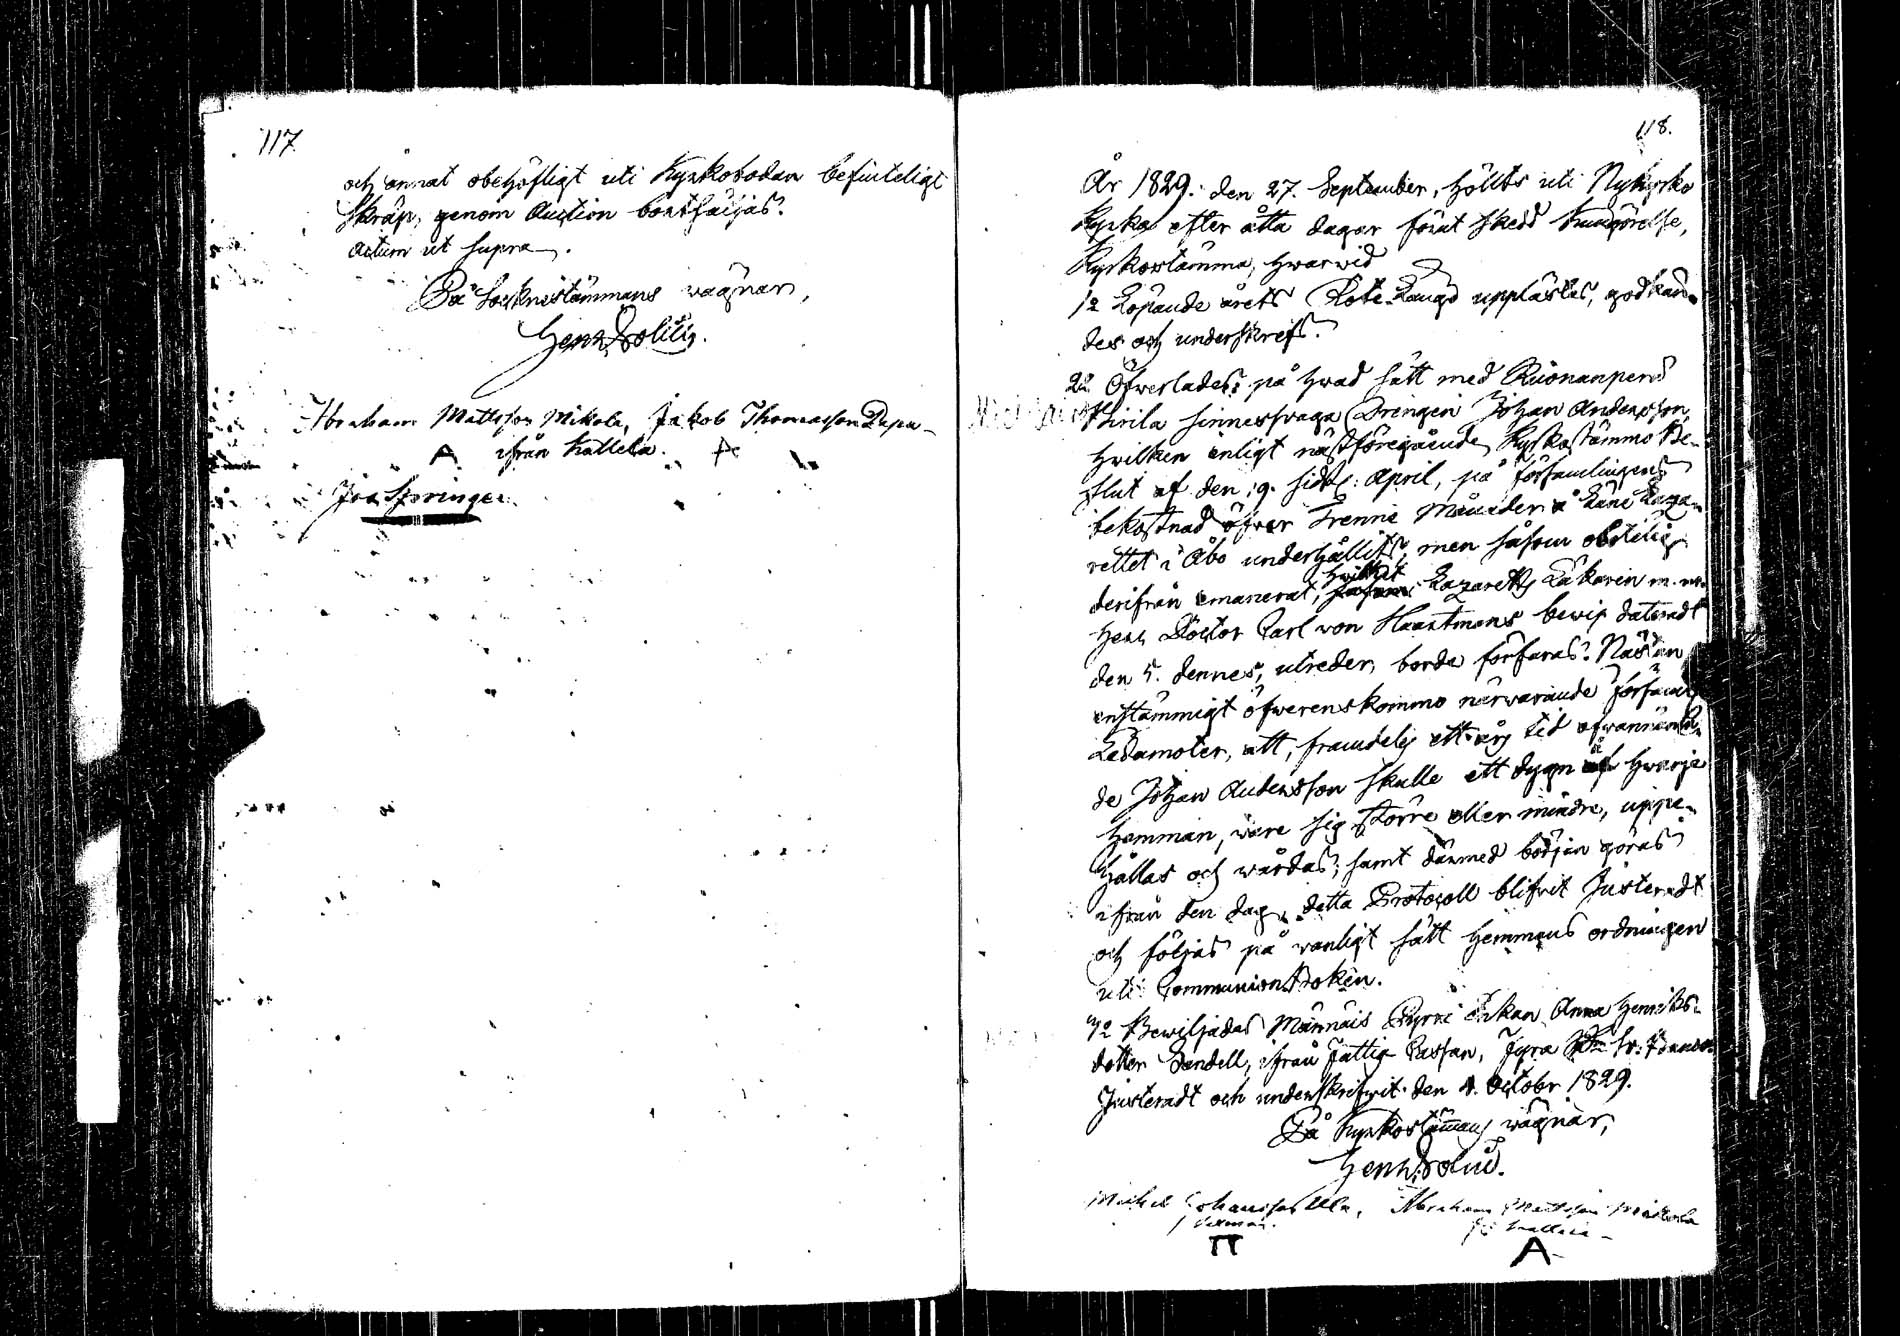 117.
och annat obehöfligt uti Kyrkobodan befinteligt
skräp, genom Auction bortsäljas.
Actum ut supra.
På Socknestämmans wägnar,
Henr.
Abraham Mattsson Mikola, Jakob Thomasson Papa
A ifrån Kattela.
Joa Springer.
118.
År 1829. den 27. September, hölts uti Nykyrko
Kyrka efter åtta dagar förut skedd kungörelse,
Kyrkostämma, hwarwid
1o Löpande årets Rote-Längd upplästes, godkän-
des och underskrefs.
2o Öfwerlades: på hwad sätt med Ruonanperä
Kirila sinnessvaga Drengen Johan Andersson,
hwilken enligt nästföregående Kyrkostämmo Be-
slut af den 19. sidstl. April, på Församlingens
bekostnad öfver Trenne Månader å Läne Laza-
rettet i Åbo underhållits, men såsom obotelig
derifrån emanerat, hwilket Lazaretts Läkaren m. m.
Herr Doctor Carl von Haartmans bewis dateradt
den 5. dennes, utreder, borde förfaras. Nästan
enstämmigt öfwerenskommo närwarande Församl.
Ledamoter, att, framdeles ett års tid ofwannämn-
de Johan Andersson skulle ett dygn å hwarje
Hemman, ware sig större eller mindre, uppe-
hållas och wårdas; samt därmed början göras
ifrån den dag, detta Protocoll blifvit Justeradt
och följas på vanligt sätt Hemmans ordningen
uti Communion Boken.
3o Bewiljades Männäis Pyrri Enkan Anna Henriks-
dotter Sandell, ifrån Fattig Cassan, Fyra
Justeradt och underskrifwit den 4. Octobr 1829.
På Kyrkostämmans wägnar,
Henr.
Michel Johansson Ulla, Abraham Mattsson Mikola
A